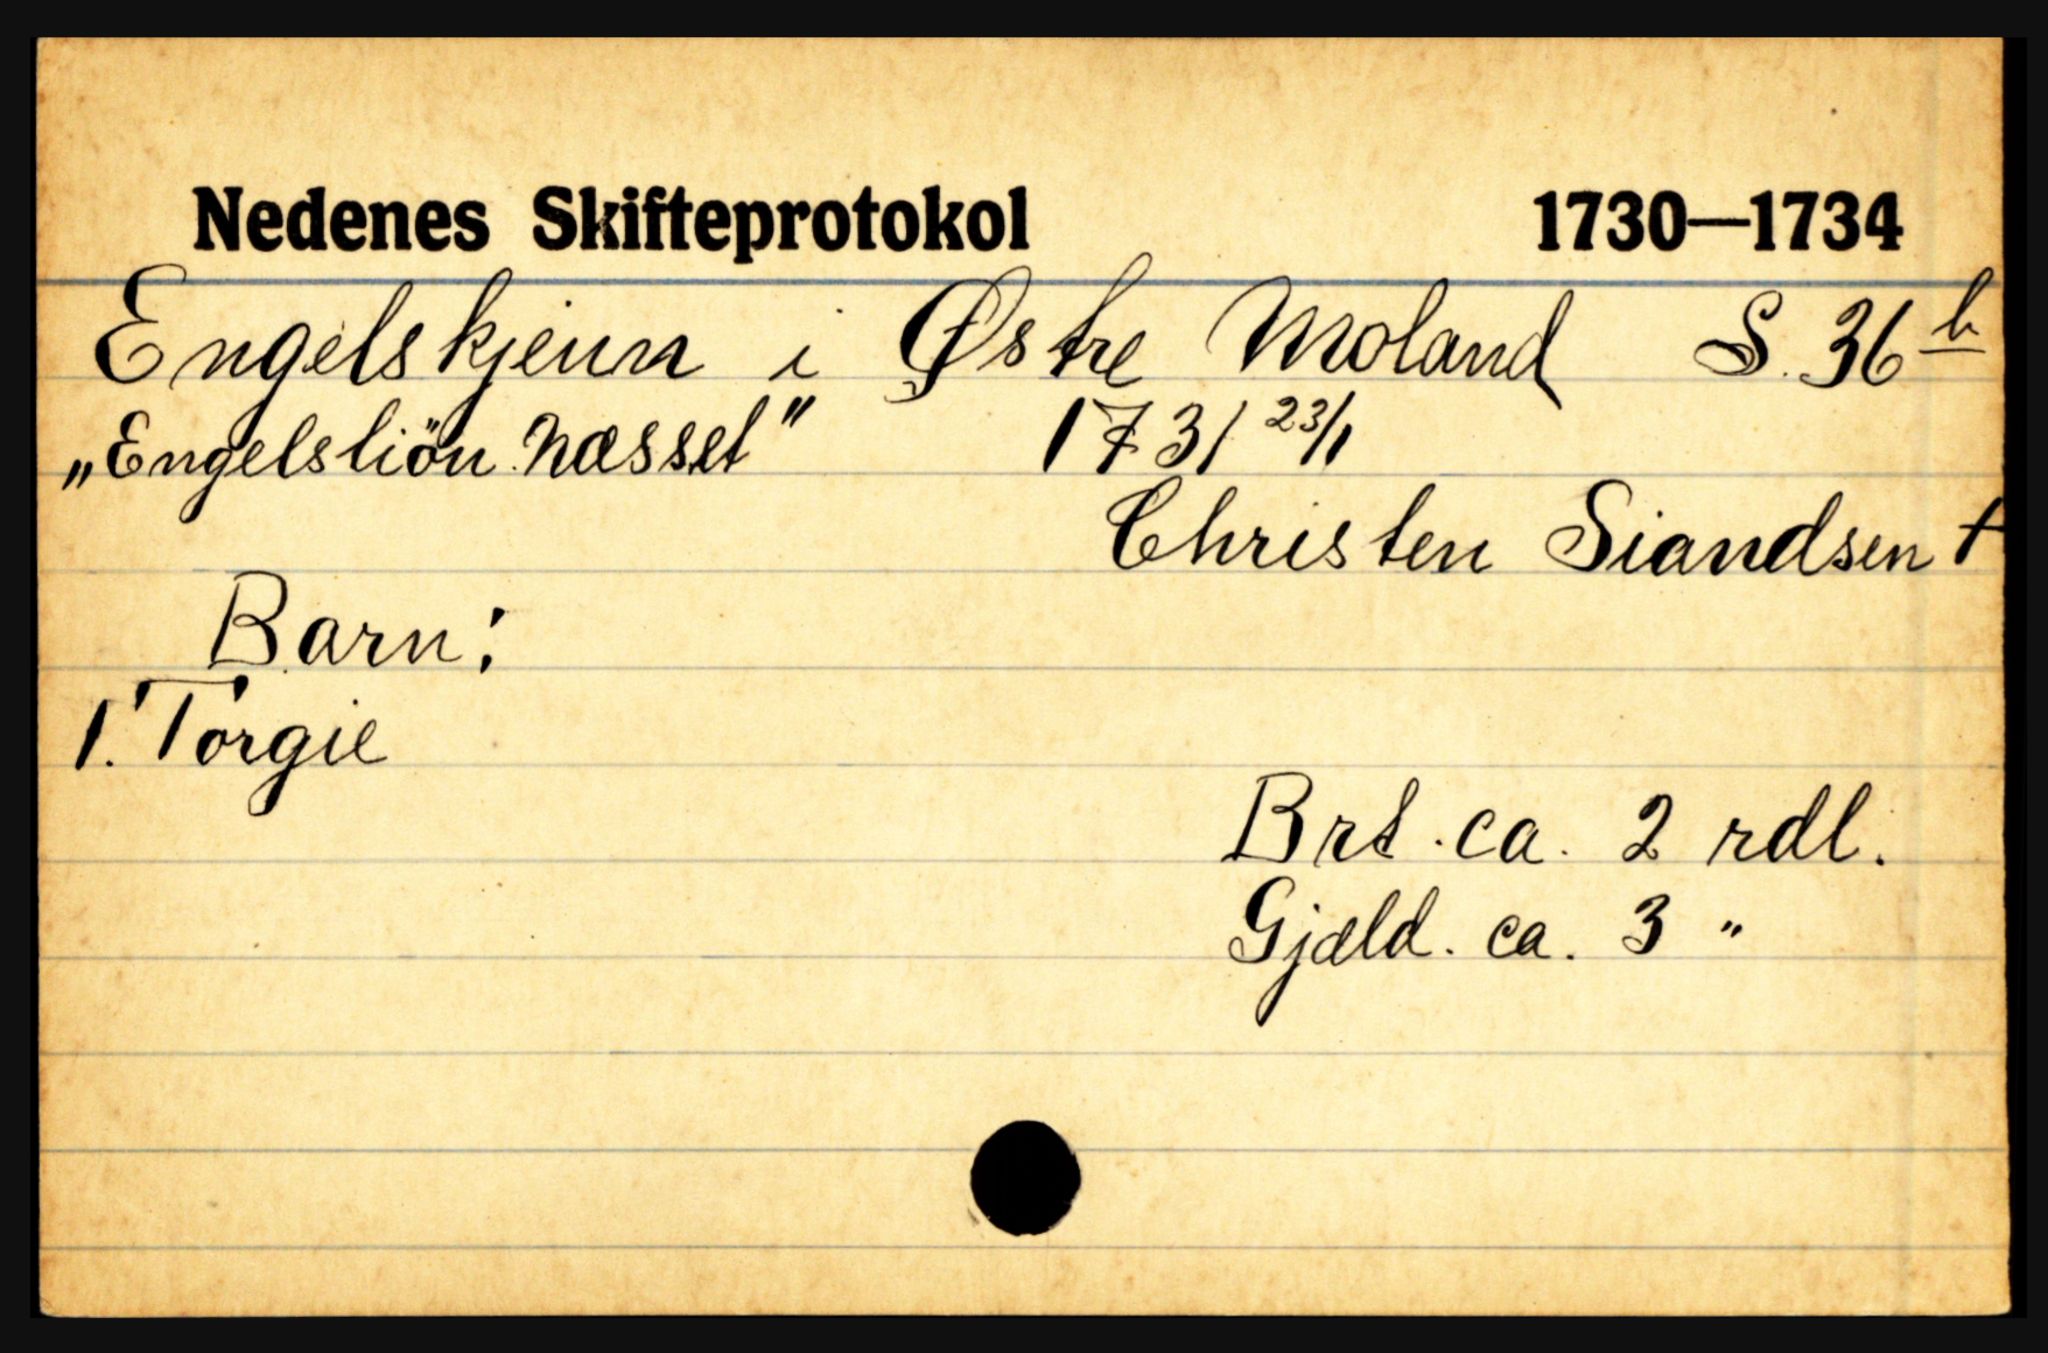 Nedenes Skifteprotokol 1730—1734
Engelskjenn i Østre Moland S. 36 b
„Engelsliön Næsset" 1731 23/1
Christen Siandsen †
Barn:
1. Torgie
Brt. ca. 2 rdl.
Gjæld. ca. 3 "